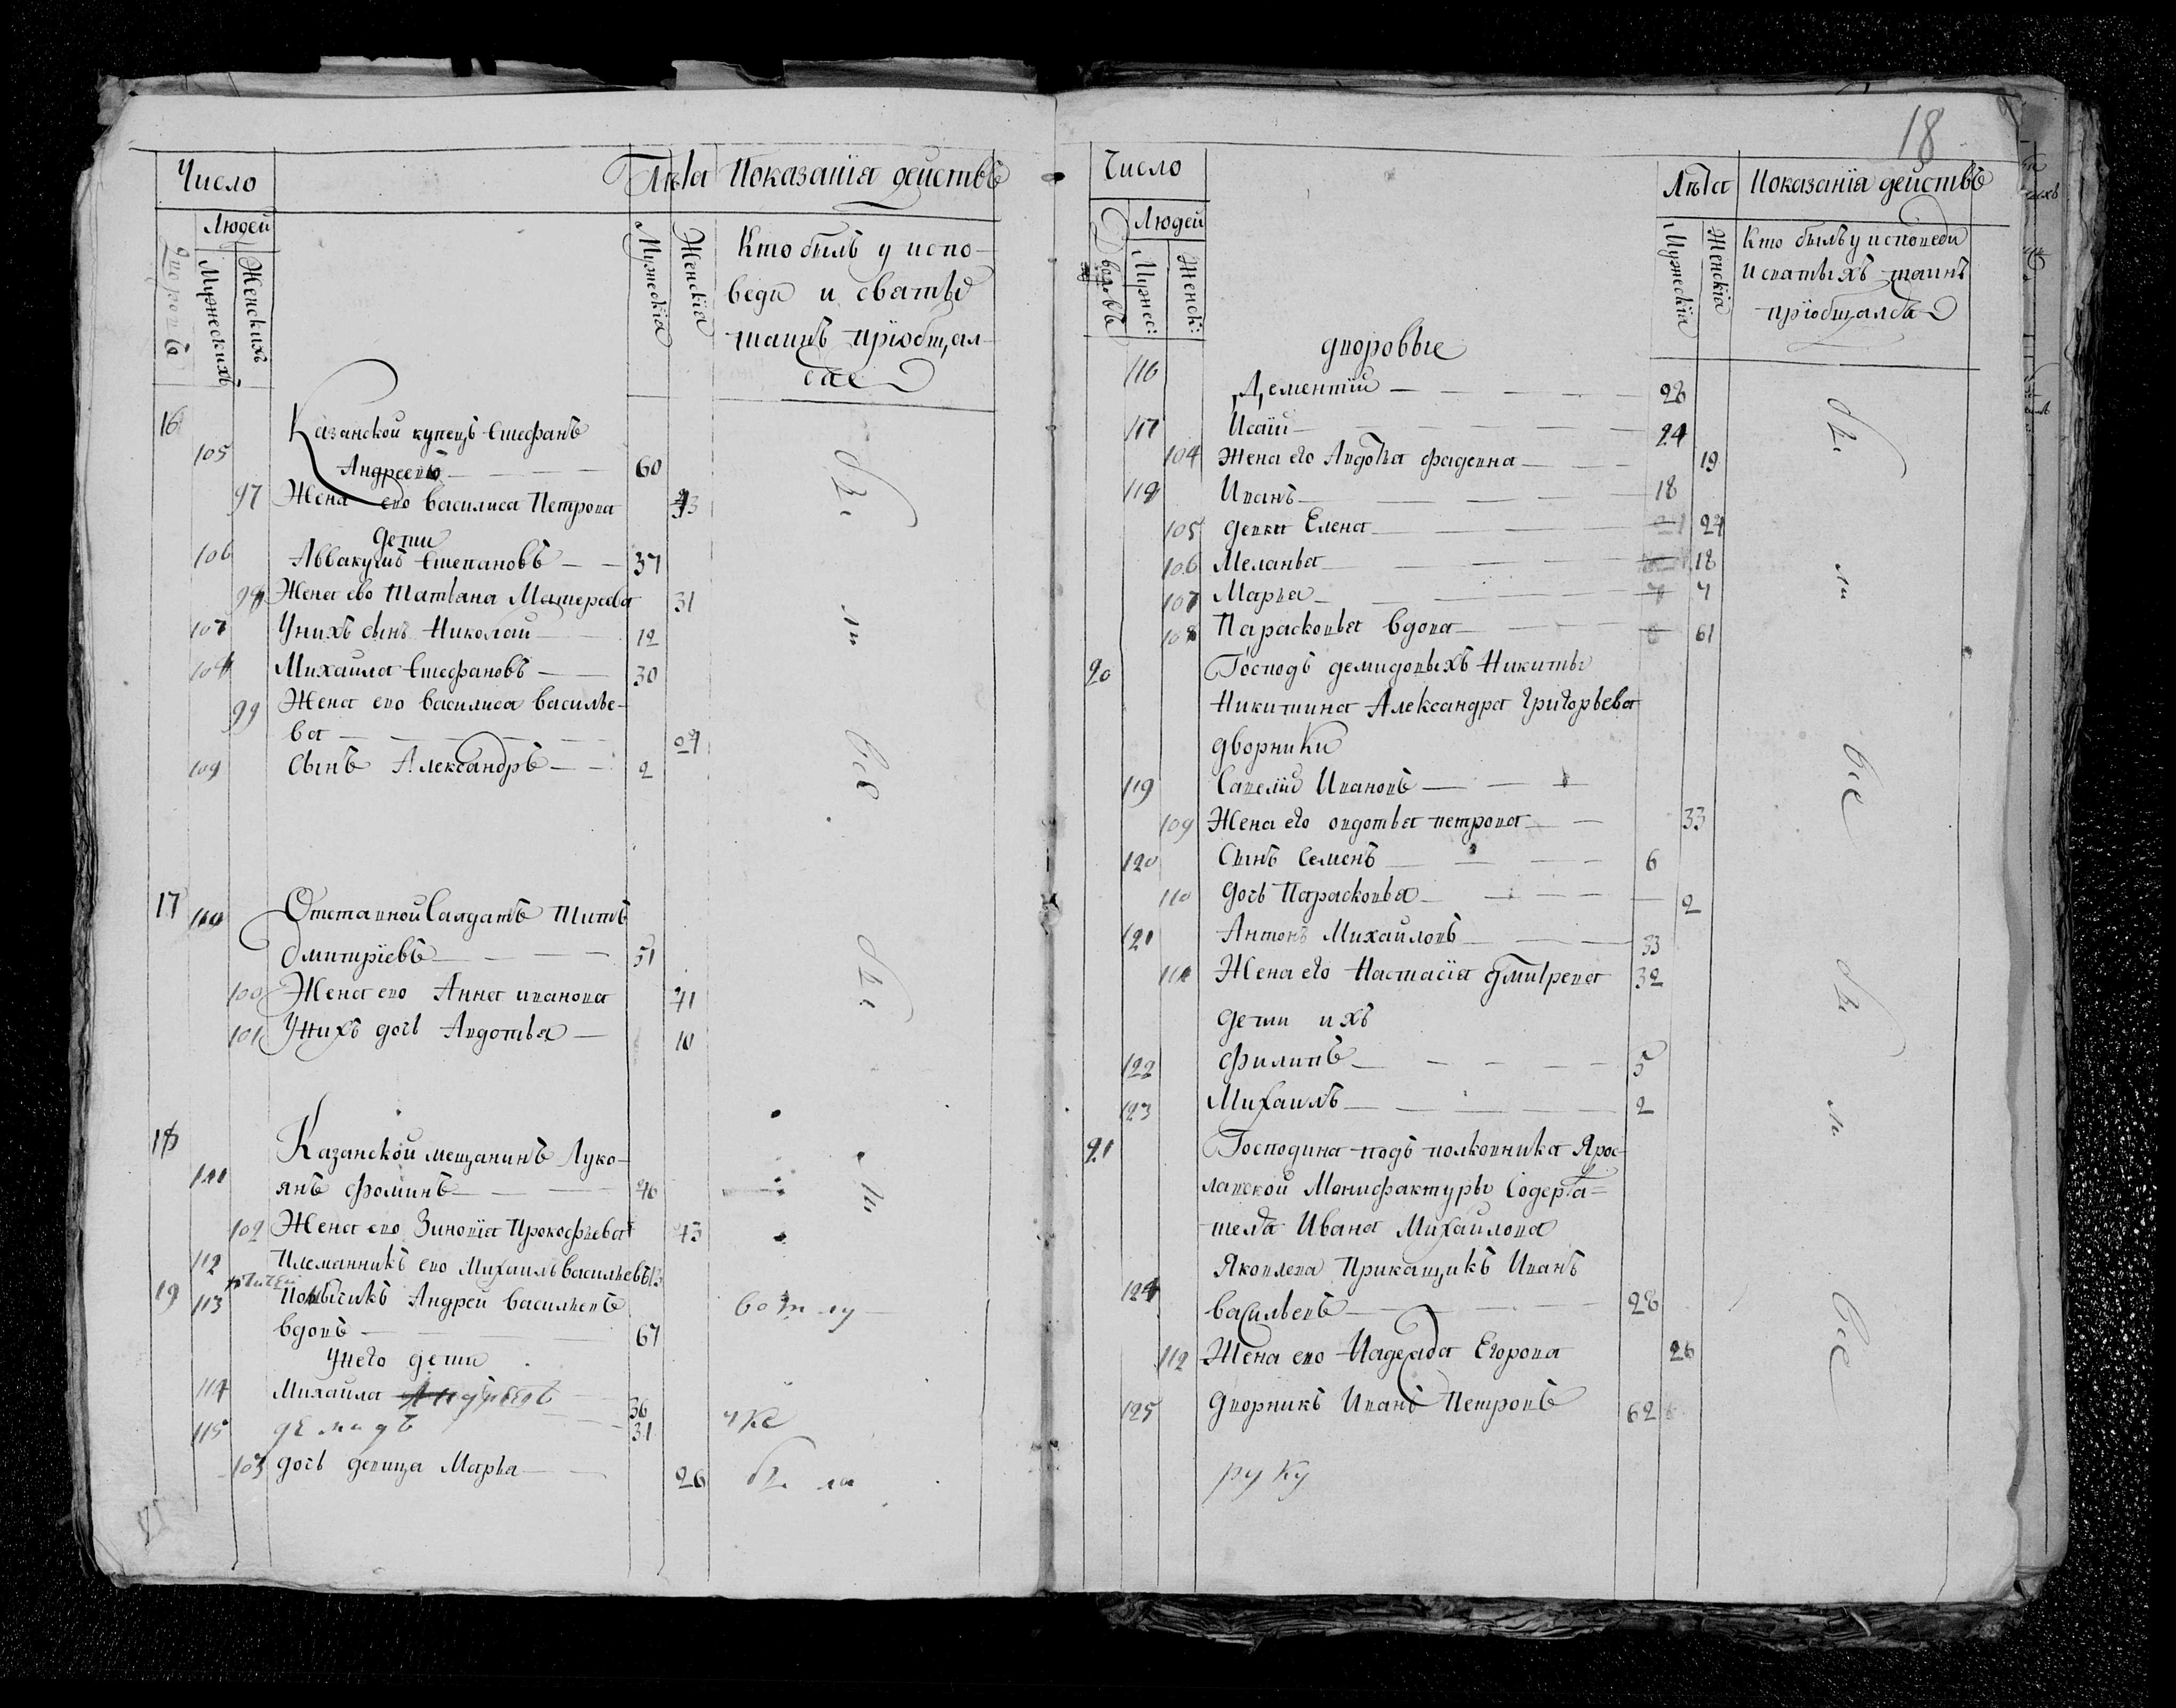 Число
Лѣта Показанїя действъ
Людей
Дворовъ
Мужескихъ
Женскихъ
Мужескїя
Женскїя
Кто былъ у испо-
веди и святыхъ
таинъ прїобщал-
ся
16 Казанской купецъ Стефанъ
105 Андреевъ 60
97 Жена ево Василиса Петрова
дети
106 Аввакумъ Степановъ 37
98 Жена ево Татьяна 31
107 Унихъ сынъ Николай 12
108 Михаила Стефановъ 30
99 Жена ево Василиса Василье-
ва 27
109 Сынъ Александръ 2
были
всѣ
17 110 Отставной Салдатъ Титъ
Дмитрїевъ 51
100 Жена ево Анна иванова 41
101 Унихъ дочь Авдотья 10
были
18 Казанской мещанинъ Луко-
111 янъ Фоминъ
102 Жена ево Зиновїя Прокофьева 43
112 Племянникъ ево Михаилъ Васильевъ 13
19 113 Андрей Васильевъ
вдовъ 67
Унего дети
114 Михаила Андреевъ 36
115 демидъ 31
103 дочь девица Марья 26 была
18
Число
Лѣта Показанїя действъ
Людей
Дворовъ
Мужес:
Женск:
Мужескїя
Женскїя
Кто былъ у исповеди
и святыхъ таинъ
прїобщался
дворовые
116 Дементїй 28
117 Исаїй 24
104 Жена его Авдотья Фадевна 19
118 Иванъ 18
105 девка Елена 27
106 Меланья 18
107 Марья 7
108 Парасковья вдова 61
20 Господъ демидовыхъ Никиты
Никитина Александра Григорьева
дворники
119 Савелїй Ивановъ
109 Жена его овдотья петрова 33
120 Сынъ Семенъ 6
110 дочь Парасковья 2
121 Антонъ Михайловъ 33
111 Жена его Настасїя дмитрева 32
дети ихъ
122 Филипъ 5
123 Михаилъ 2
21 Господина подъ полковника Ярос-
лавской Манифактуры Содержа=
теля Ивана Михайлова
Яковлева Прикащикъ Иванъ
124 Васильевъ 28
112 Жена ево Надежда Егорова 26
125 дворникъ Иванъ Петровъ 62
были
все
были
все
руку